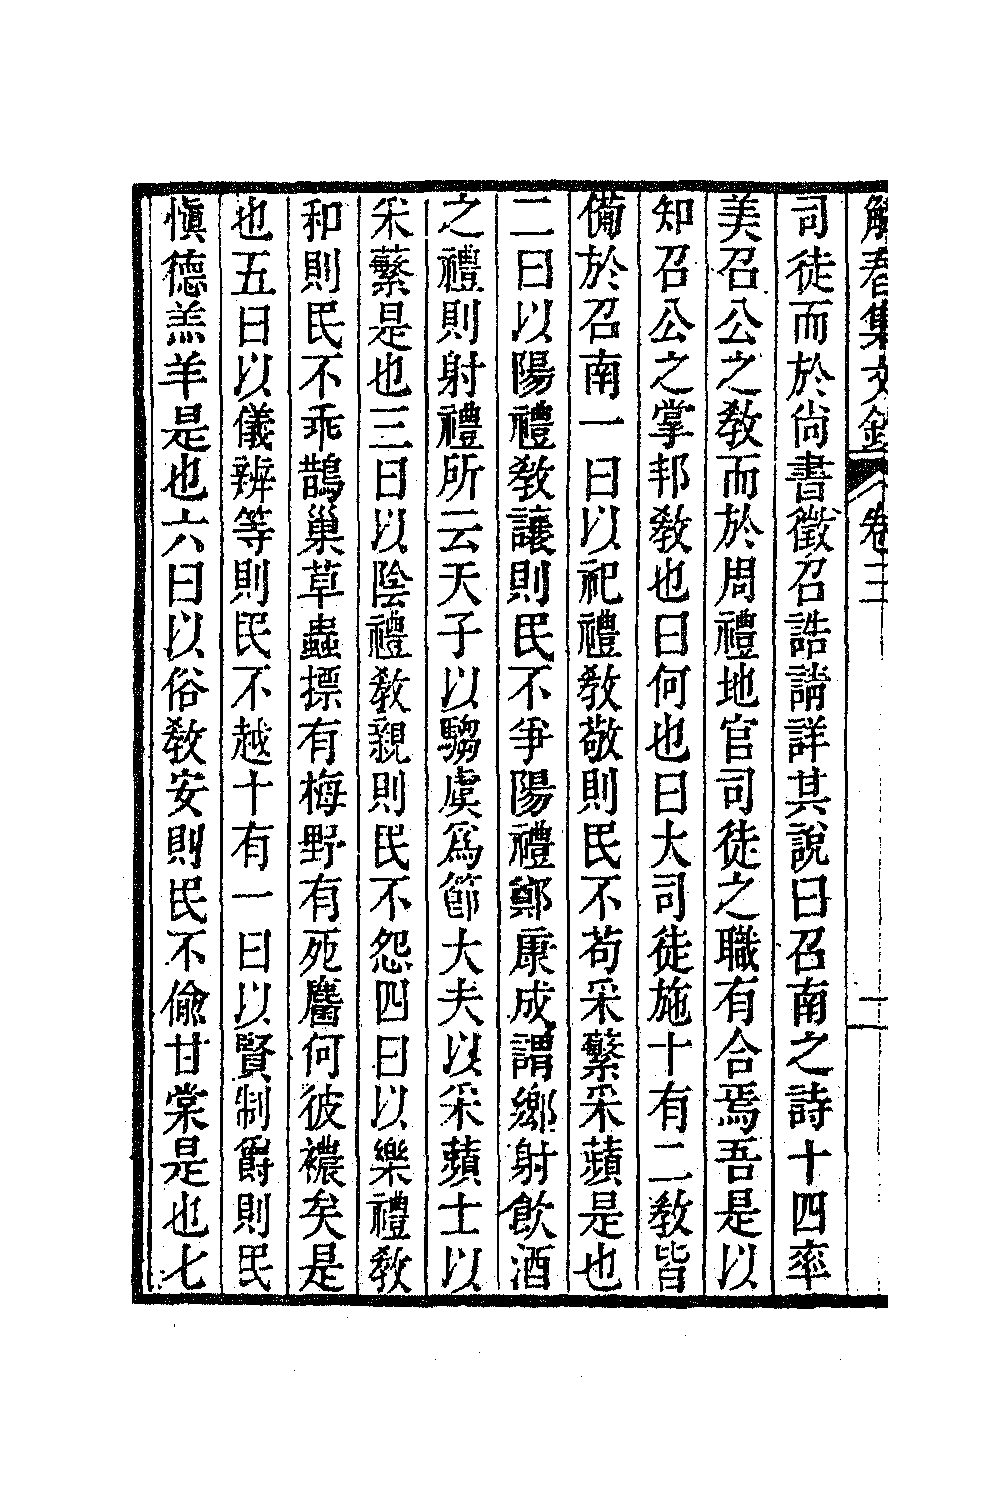 解舂集文鈔 卷三 二
司徒而於尚書徵召誥請詳其說曰召南之詩十四率
美召公之教而於周禮地官司徒之職有合焉吾是以
知召公之掌邦教也曰何也曰大司徒施十有二教皆
備於召南一曰以祀禮教敬則民不苟采蘩采蘋是也
二曰以陽禮教讓則民不爭陽禮鄭康成謂鄉射飲酒
之禮則射禮所云天子以騶虞爲節大夫以采蘋士以
采蘩是也三曰以陰禮教親則民不怨四曰以樂禮教
和則民不乖鵲巢草蟲摽有梅野有死麕何彼襛矣是
也五曰以儀辨等則民不越十有一曰以賢制爵則民
愼德羔羊是也六曰以俗教安則民不偷甘棠是也七